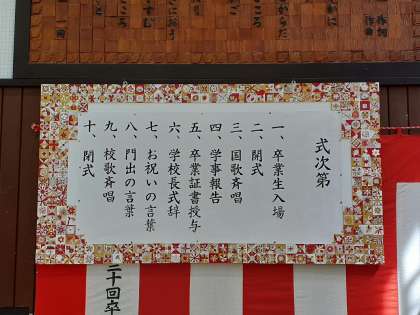 式次第
一、卒業生入場
二、開式
三、国歌斉唱
四、学事報告
五、卒業証書授与
六、学校長式辞
七、お祝いの言葉
八、門出の言葉
九、校歌斉唱
十、閉式
二十回卒
作詞
作曲
からだ
こころ